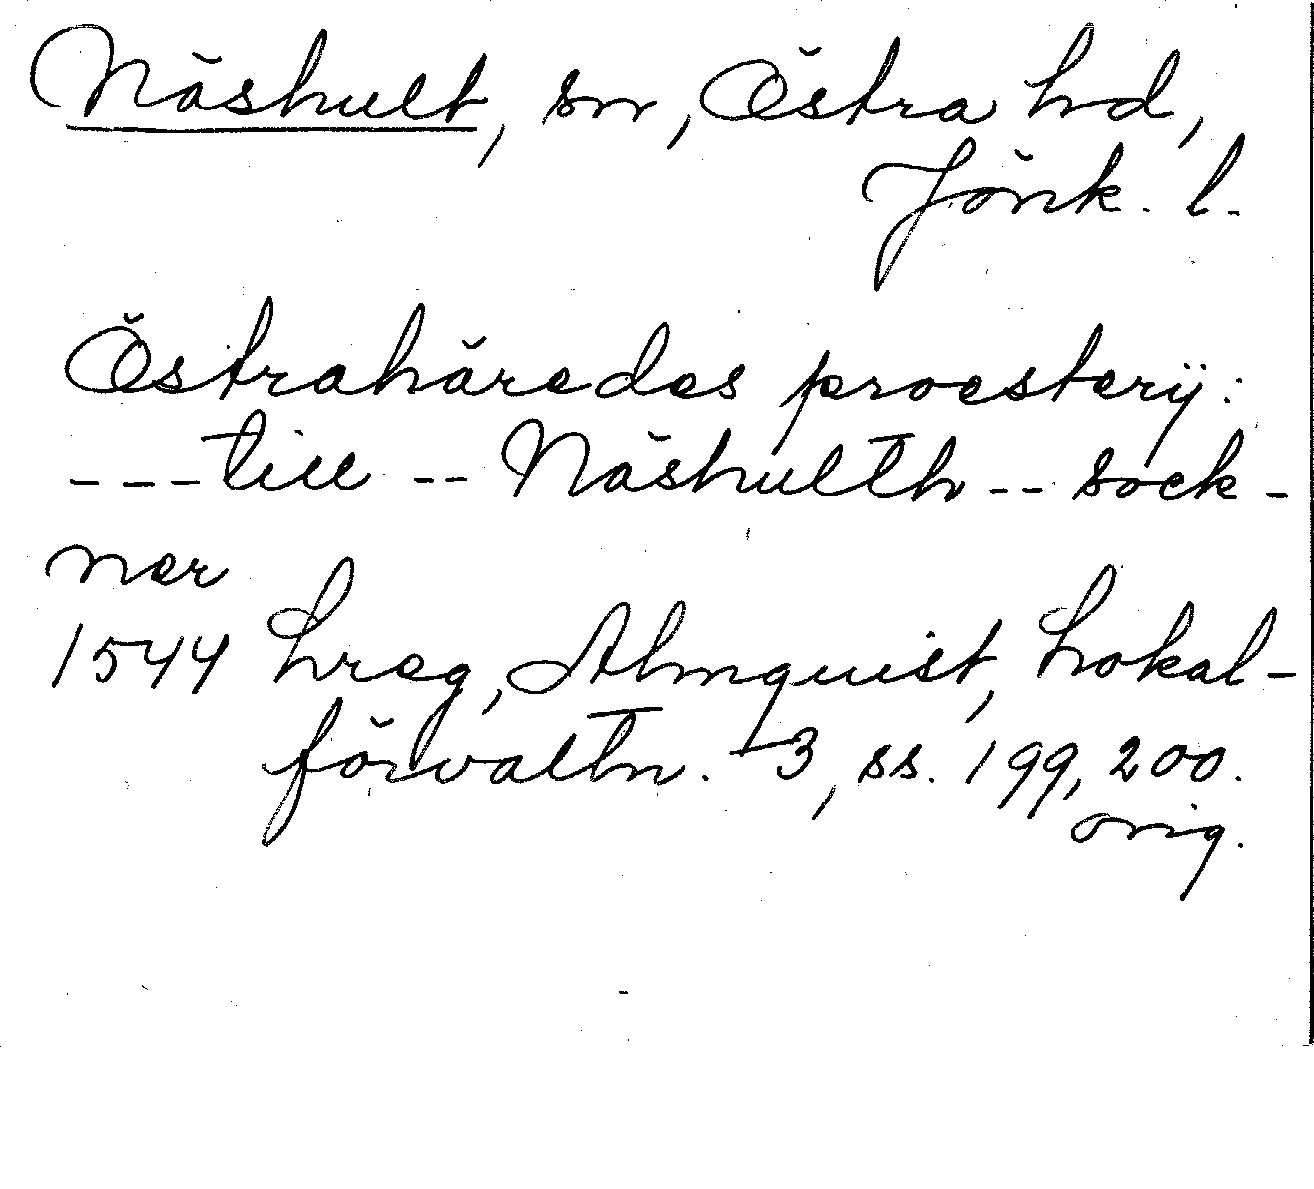 Näshult, sn, Östra hd,
Jönk. l.
Östrahäredes proesterij:
---till -- Näshullth -- sock-
ner
1544 hreg, Almquist, Lokal-
förvaltn. 3, ss. 199, 200.
orig.